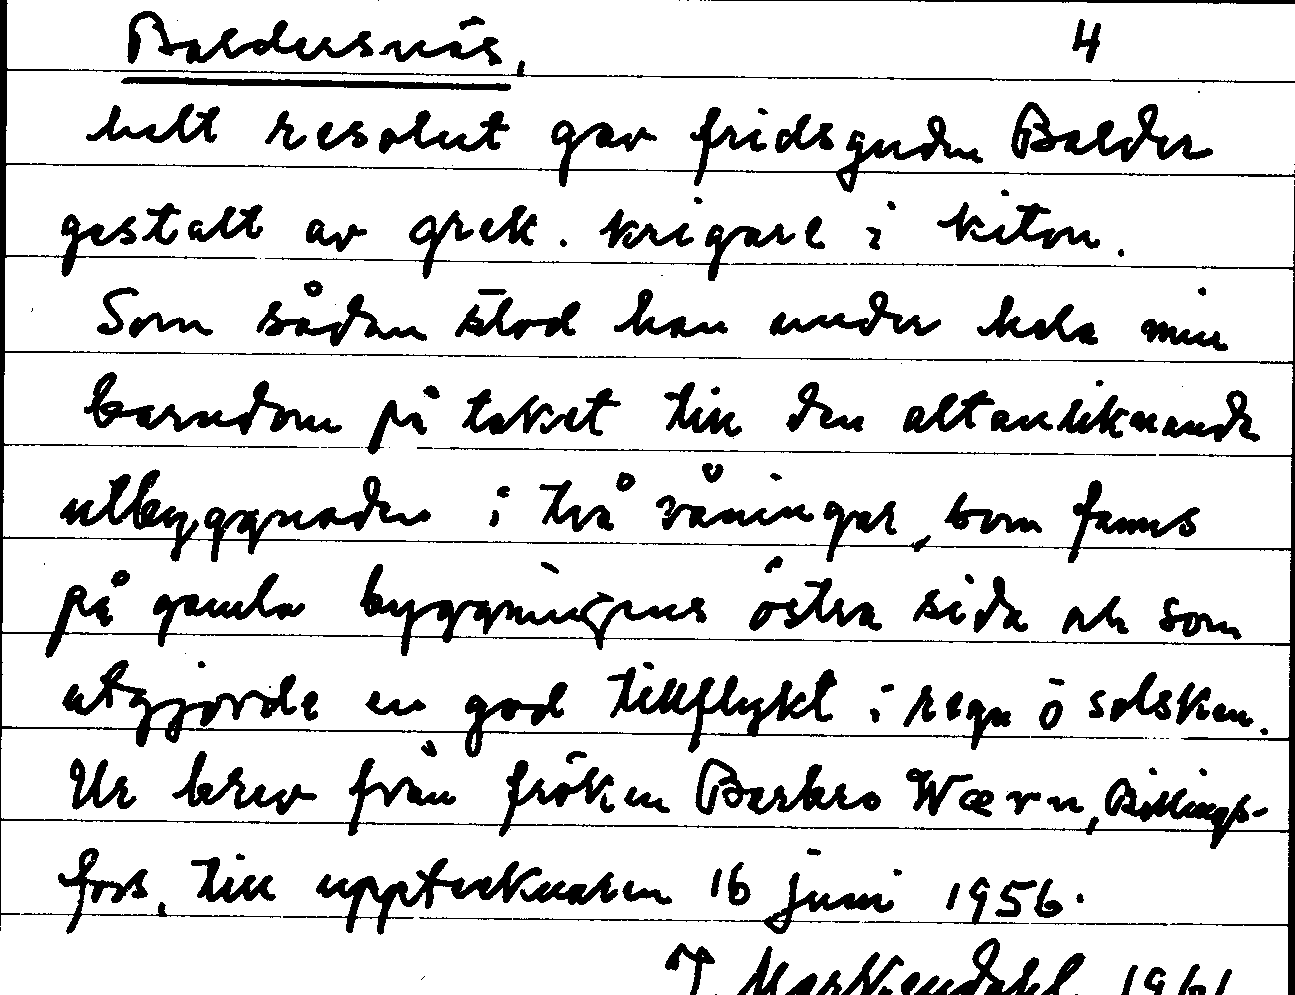 Baldersnäs, 4
helt resolut gav fridsguden Balder
gestalt av grek. krigare i kiton.
Som sådan stod han under hela min
barndom på taket till den altanliknande
utbyggnaden i två våningar, som fanns
på gamla byggningens östra sida och som
utgjorde en god tillflykt i regn o solsken.
Ur brev från fröken Barbro Wærn, Billings-
fors, till upptecknaren 16 juni 1956.
1961